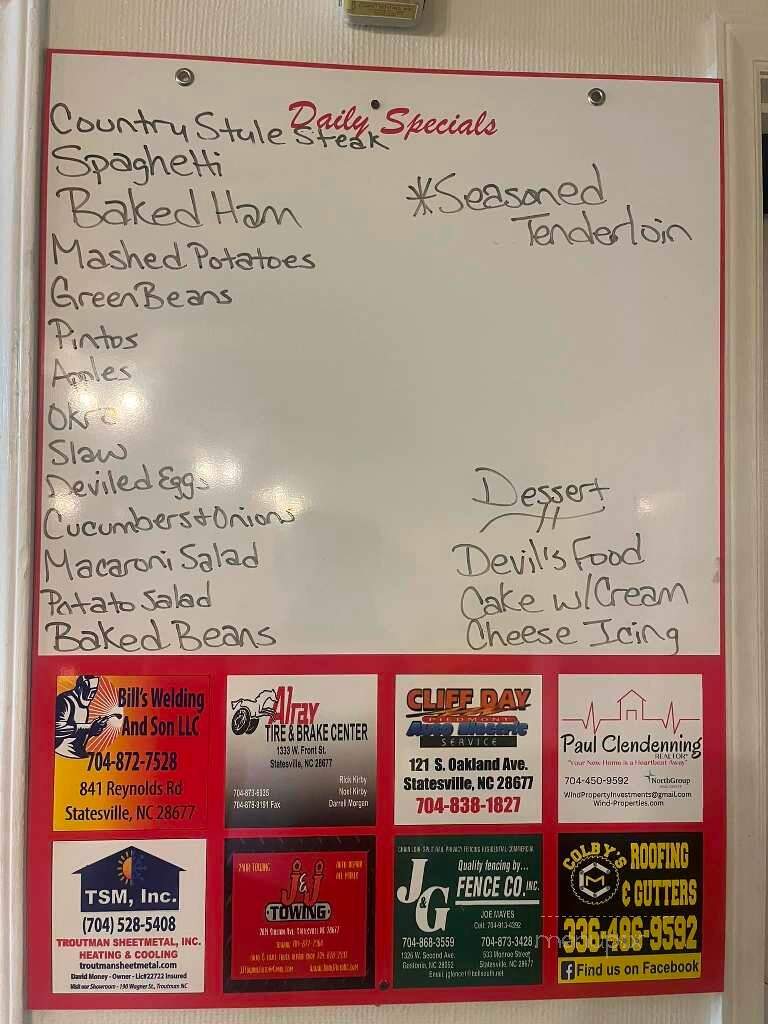 Daily Specials
Country Style Steak
Spaghetti
Baked Ham
Mashed Potatoes
Green Beans
Pintos
Apples
Okra
Slaw
Deviled Eggs
Cucumbers + Onions
Macaroni Salad
Potato Salad
Baked Beans
*Seasoned
Tenderloin
Dessert
Devil's Food
Cake w/Cream
Cheese Icing
Bill's Welding
And Son LLC
704-872-7528
841 Reynolds Rd
Statesville, NC 28677
Alray
TIRE & BRAKE CENTER
1333 W. Front St.
Statesville, NC 28677
Rick Kirby
Noel Kirby
Darrell Morgan
CLIFF DAY
PIEDMONT
Auto Electric
SERVICE
121 S. Oakland Ave.
Statesville, NC 28677
704-838-1827
Paul Clendenning
REALTOR®
"Your New Home is a Heartbeat Away"
704-450-9592
NorthGroup
WindPropertyInvestments@gmail.com
Wind-Properties.com
TSM, Inc.
(704) 528-5408
TROUTMAN SHEETMETAL, INC.
HEATING & COOLING
troutmansheetmetal.com
David Money - Owner - Lic#22722 Insured
Visit our Showroom - 190 Wagner St., Troutman NC
24HR TOWING
AUTO REPAIR
J&J
TOWING
Quality fencing by...
J&G
FENCE CO. INC.
JOE MAYES
704-868-3559
704-873-3428
1326 W. Second Ave.
Gastonia, NC 28052
533 Monroe Street
Statesville, NC 28677
COLBY'S
ROOFING
& GUTTERS
336-486-9592
Find us on Facebook